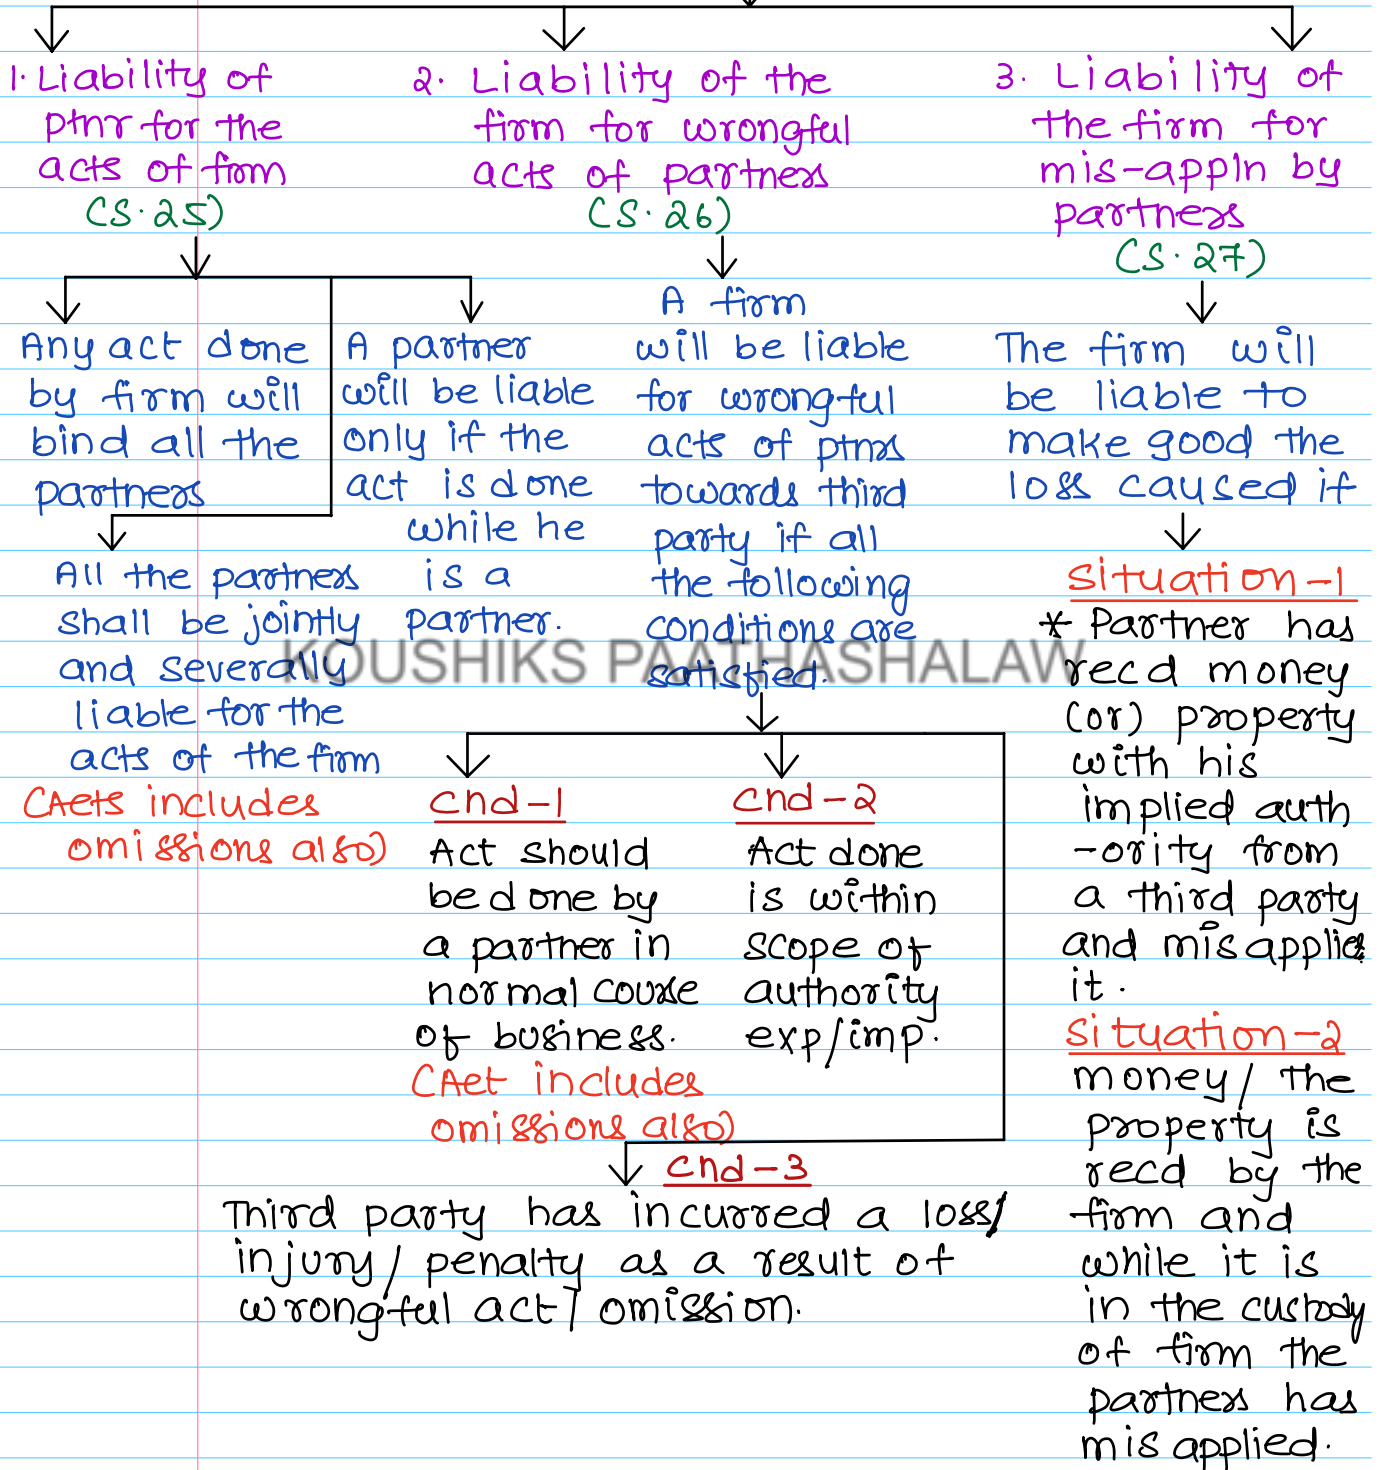 1. Liability of
ptnr for the
acts of firm
(S.25)
Any act done
by firm will
bind all the
partners
All the partners
shall be jointly
and severally
liable for the
acts of the firm
(Acts includes
omissions also)
A partner
will be liable
only if the
act is done
while he
is a
partner.
2. Liability of the
firm for wrongful
acts of partners
(S.26)
A firm
will be liable
for wrongful
acts of ptnrs
towards third
party if all
the following
conditions are
satisfied.
cnd-1
Act should
be done by
a partner in
normal course
of business.
(Act includes
omissions also)
cnd-2
Act done
is within
scope of
authority
exp/imp.
cnd-3
Third party has incurred a loss/
injury/ penalty as a result of
wrongful act/ omission.
3. Liability of
the firm for
mis-appln by
partners
(S.27)
The firm will
be liable to
make good the
loss caused if
situation-1
* Partner has
recd money
(or) property
with his
implied auth
-ority from
a third party
and misapplies
it.
situation-2
money/ the
property is
recd by the
firm and
while it is
in the custody
of firm the
partners has
misapplied.
KOUSHIKS PAATHASHALAW